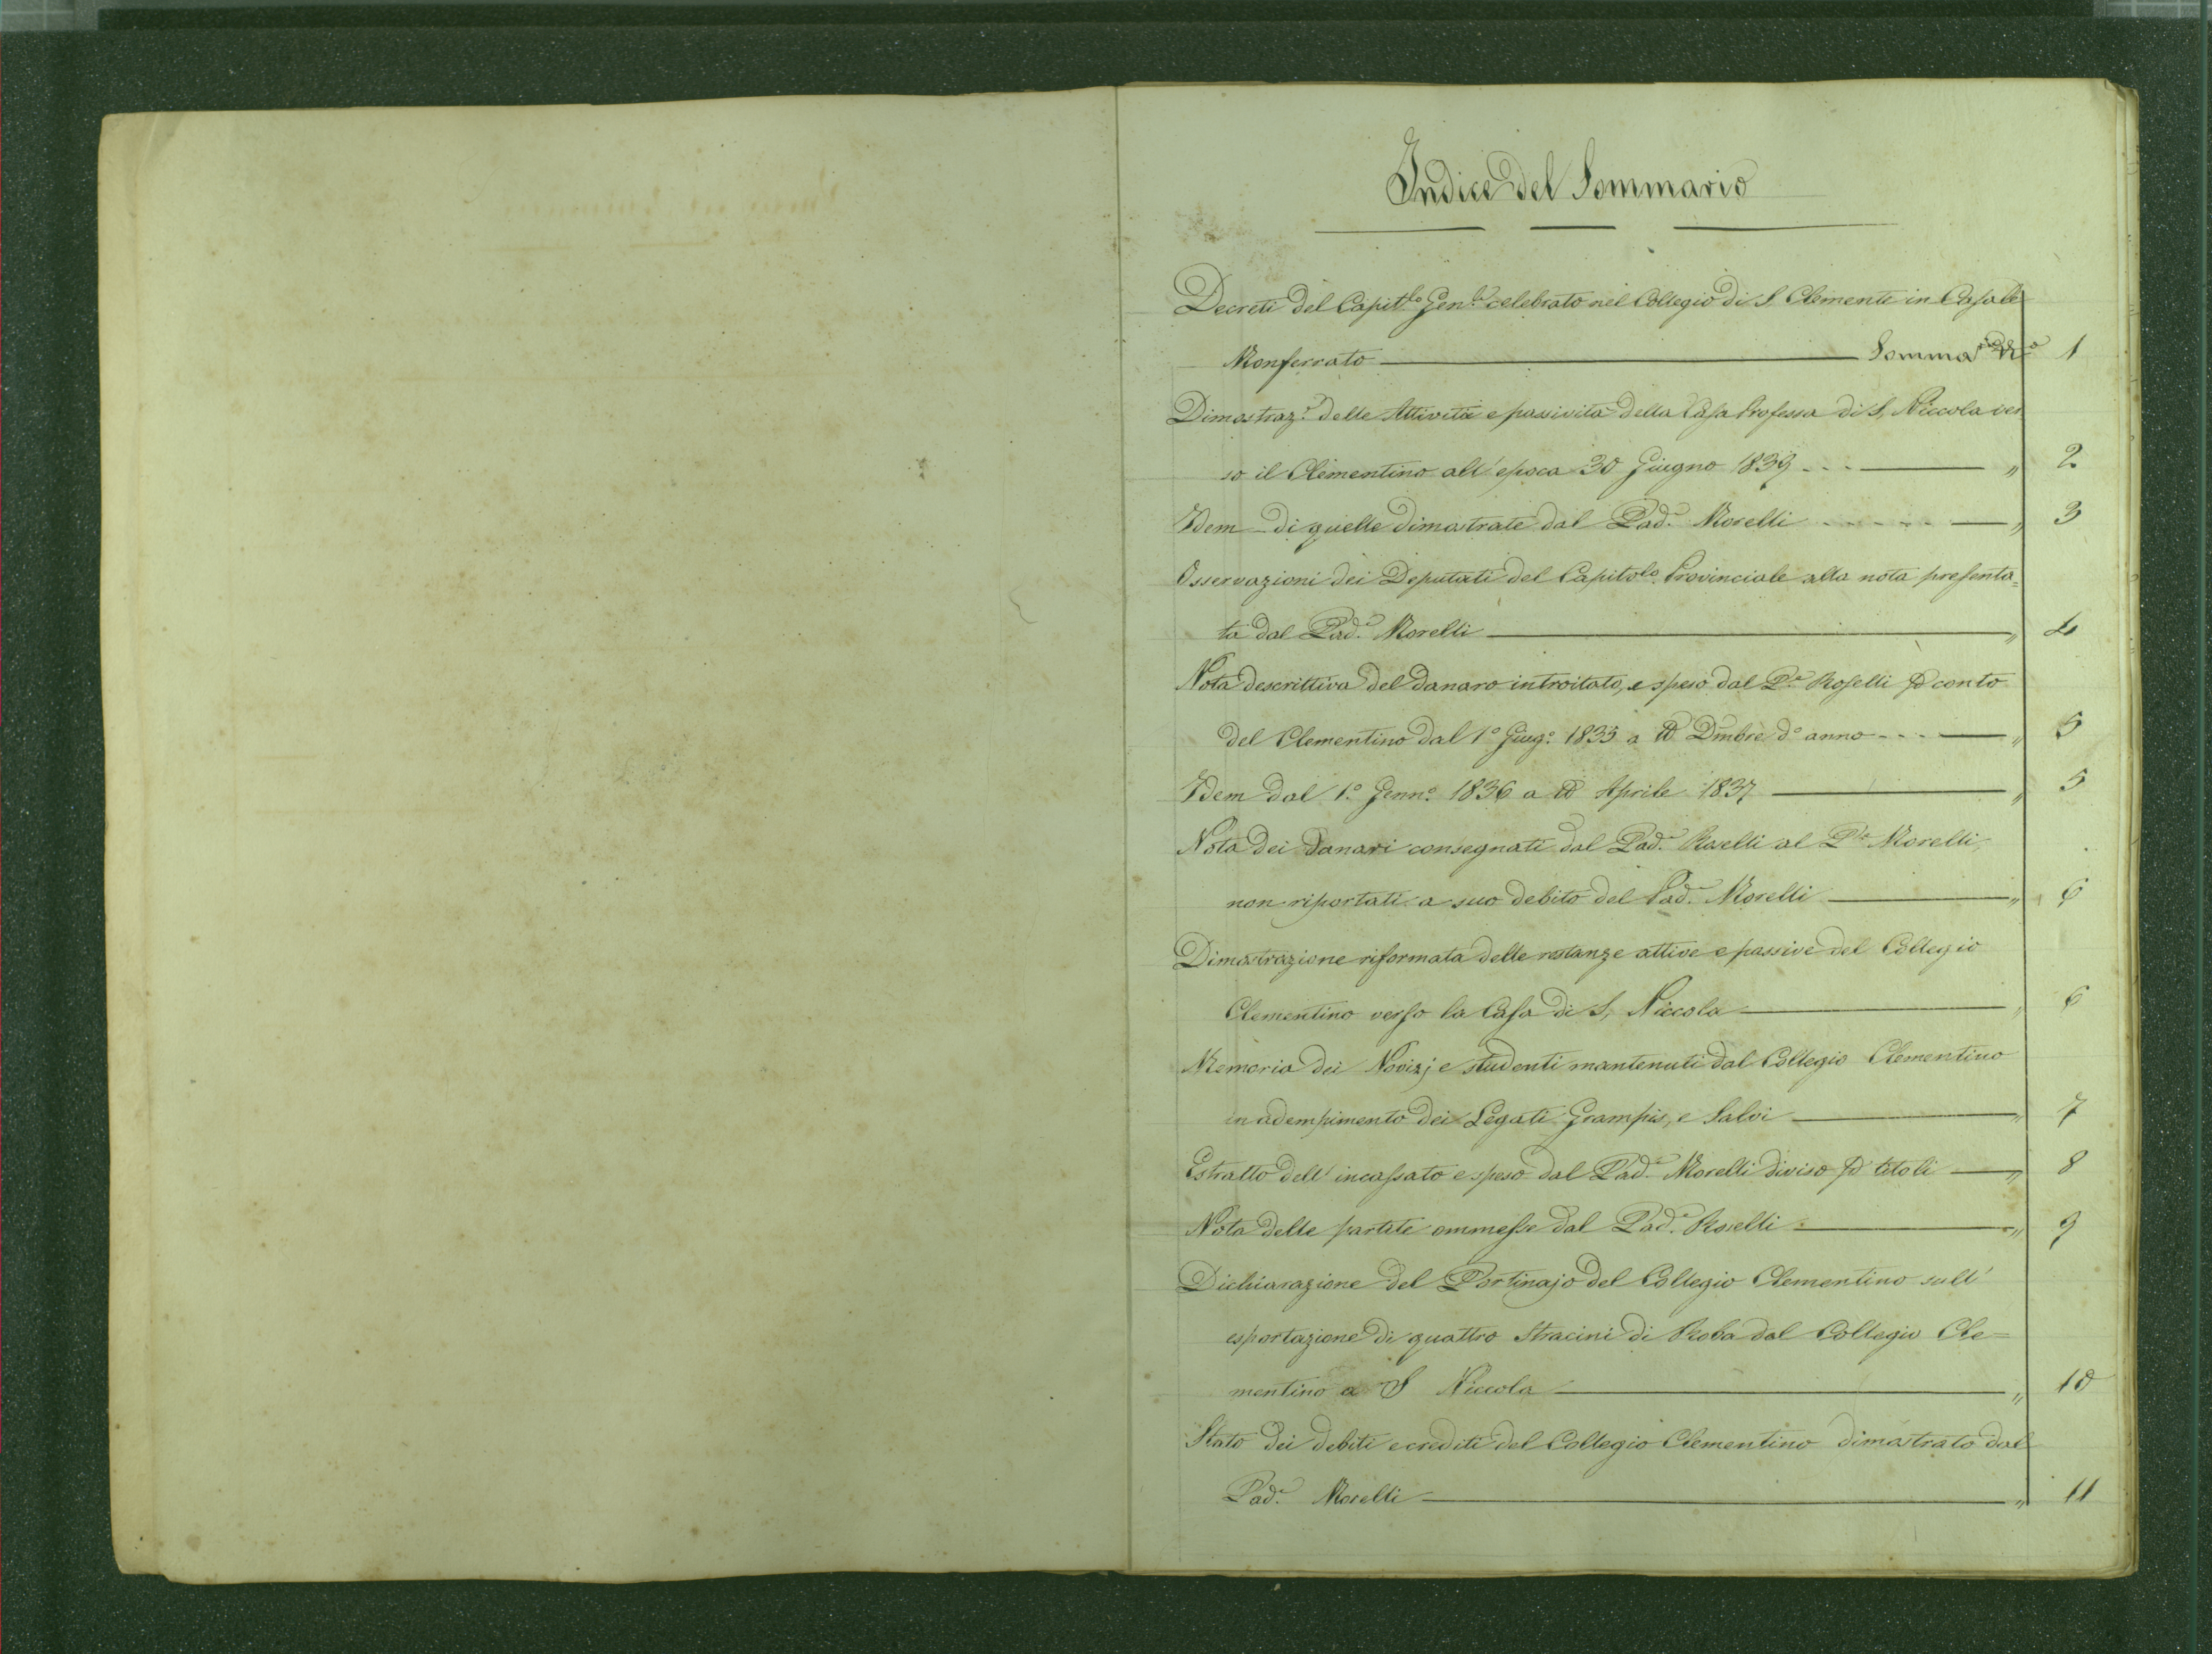 Indice del Sommario
Decreti del Capit.lo Gen.le celebrato nel Collegio di S. Clemente in Casale
Monferrato — Sommar.io N.o 1
Dimostraz.e delle Attività e passività della Casa Professa di S. Niccola ver
so il Clementino all'epoca 30 Giugno 1839 - - - — " 2
Idem - di quelle dimostrate dal Pad.e Morelli - - - - - — " 3
Osservazioni dei Deputati del Capitolo Provinciale alla nota presenta=
ta dal Pad.e Morelli — " 4
Nota descrittiva del danaro introitato, e speso dal P.e Roselli p conto
del Clementino dal 1° Giug.o 1835 a tt° Dmbre d° anno - - - — " 5
Idem dal 1.° Genn.o 1836 a tt° Aprile 1837 — " 5
Nota dei danari consegnati dal Pad.e Roselli al P.re Morelli,
non riportati a suo debito del Pad.e Morelli — " 6
Dimostrazione riformata delle restanze attive e passive del Collegio
Clementino verso la Casa di S. Niccola — " 6
Memoria dei Novizj e studenti mantenuti dal Collegio Clementino
in adempimento dei Legati Grampis, e Salvi — " 7
Estratto dell' incassato e speso dal Pad.e Morelli diviso p titoli — " 8
Nota delle partite ommesse dal Pad.e Roselli — " 9
Dichiarazione del Portinajo del Collegio Clementino sull'
esportazione di quattro Stracini di Roba dal Collegio Cle=
mentino a S Niccola — " 10
Stato dei debiti e crediti del Collegio Clementino dimostrato dal
Pad.e Morelli — " 11